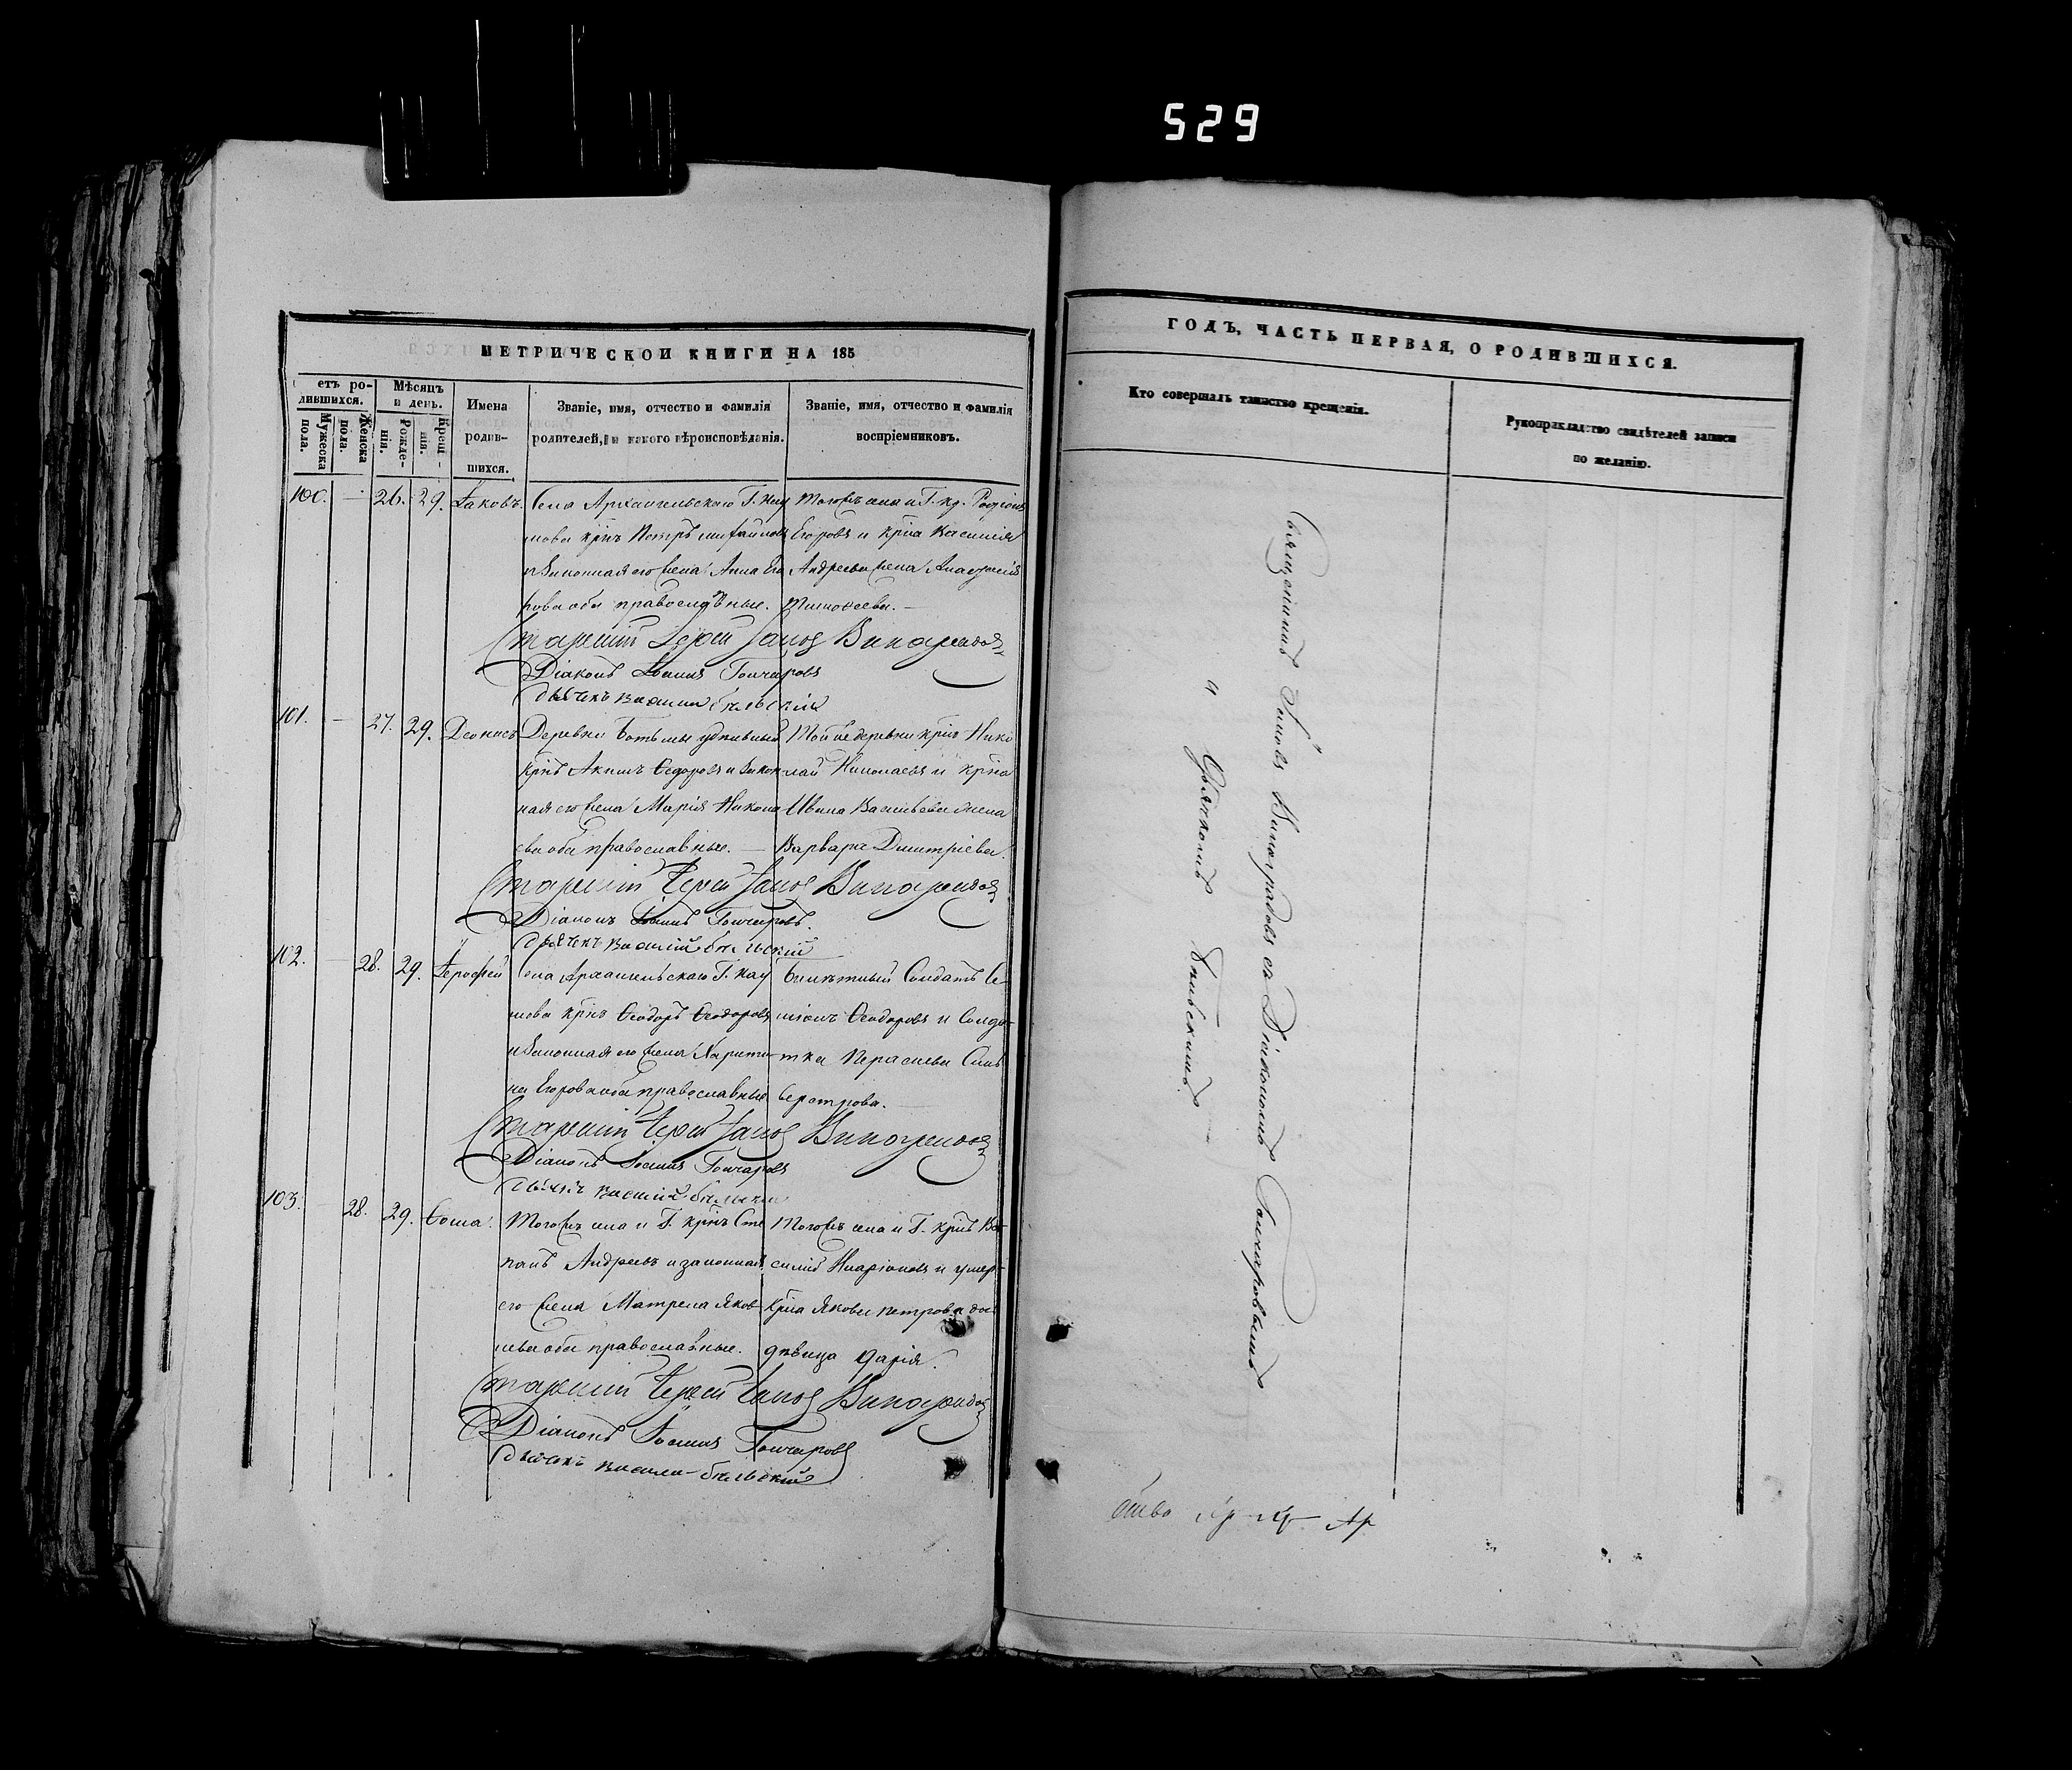 529
МЕТРИЧЕСКОЙ КНИГИ НА 185
етъ ро-
дившихся.
Мужеска
пола.
Женска
пола.
Мѣсяцъ
и день.
Рожде-
нія.
Крещ-
нія.
Имена
родив-
шихся.
Званіе, имя, отчество и фамилія
родителей, и какого вѣроисповѣданія.
Званіе, имя, отчество и фамилія
воспріемниковъ.
100. — 26. 29. Іаковъ.
Села Архангельскаго Г. Нау
мова крнъ Петръ
и Законная его жена Анна Его
рова оба православные.
Тогожъ села и Г. кр. Родіонъ
Егоровъ и крна Василія
Андреева жена Анастасія
Тимоѳеева. —
Старшій Іерей Іаковъ Виноградовъ
Діаконъ Іоаннъ Гончаровъ
Дьячекъ Василій Бѣльскій
101. — 27. 29. Деонисъ
Деревни удѣльный
крнъ Акимъ Ѳедоровъ и Закон
ная его жена Марія Никола
ева оба православные. —
Той же деревни крнъ Нико
лай Николаевъ и крна
Ивана Васильева жена
Варвара Дмитріева.
Старшій Іерей Іаковъ Виноградовъ
Діаконъ Іоаннъ Гончаровъ.
Дьячекъ Василій Бѣльскій
102. — 28. 29. Іерофей
Села Архангельскаго Г. Нау
мова крнъ Ѳеодоръ Ѳеодоровъ
и Законная его жена Харити
на Егорова оба православные
Билѣтный Солдатъ Се
міонъ Ѳеодоровъ и Солда-
тка Параскева Сильв
ерстрова.
Старшій Іерей Іаковъ Виноградовъ
Діаконъ Іоаннъ Гончаровъ
Дьячекъ Василій Бѣльскій
103. 28. 29. Ѳома.
Тогожъ села и Г. крнъ Сте
панъ Андреевъ и законная
его жена Матрена Яков
лева оба православные.
Тогожъ села и Г. крнъ Ва-
силій Иларіоновъ и умер-
крна Якова Петрова дочь
дѣвица Дарія.
Старшій Іерей Іаковъ Виноградовъ
Діаконъ Іоаннъ Гончаровъ
Дьячекъ Василій Бѣльскій
ГОДЪ, ЧАСТЬ ПЕРВАЯ, О РОДИВШИХСЯ.
Кто совершалъ таинство крещенія.
Рукоприкладство свидѣтелей записи
по желанію.
Священникъ Іаковъ Виноградовъ съ Діакономъ Гончаровымъ
и Дьячкомъ Бѣльскимъ